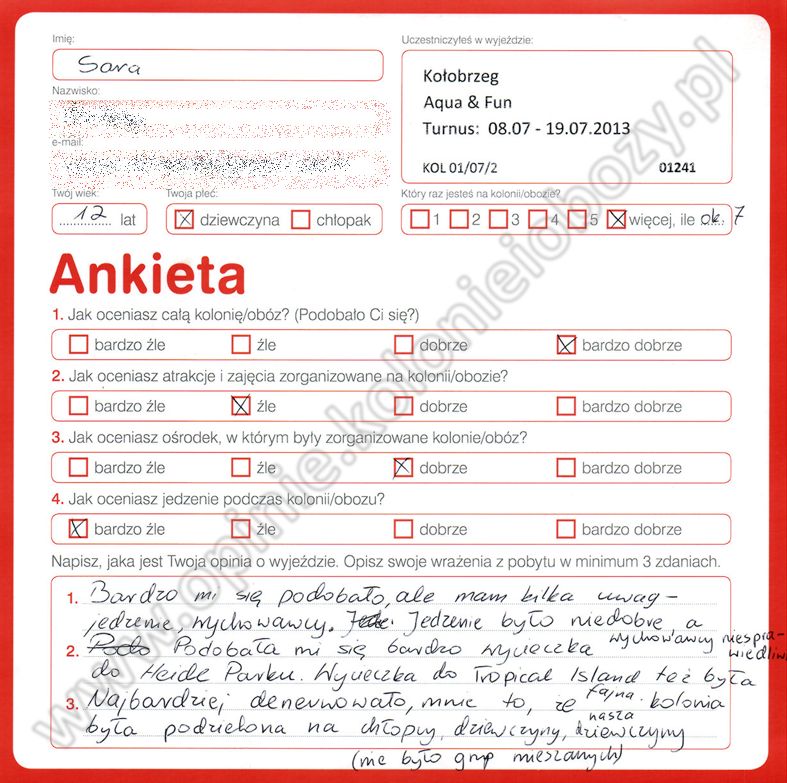 Imię:
Sara
Uczestniczyłeś w wyjeździe:
Kołobrzeg
Aqua & Fun
Turnus: 08.07 - 19.07.2013
KOL 01/07/2 01241
Nazwisko:
e-mail:
Twój wiek:
12 lat
Twoja płeć:
dziewczyna chłopak
Który raz jesteś na kolonii/obozie?
1 2 3 4 5 więcej, ile ok. 7
Ankieta
1. Jak oceniasz całą kolonię/obóz? (Podobało Ci się?)
bardzo źle źle dobrze bardzo dobrze
2. Jak oceniasz atrakcje i zajęcia zorganizowane na kolonii/obozie?
bardzo źle źle dobrze bardzo dobrze
3. Jak oceniasz ośrodek, w którym były zorganizowane kolonie/obóz?
bardzo źle źle dobrze bardzo dobrze
4. Jak oceniasz jedzenie podczas kolonii/obozu?
bardzo źle źle dobrze bardzo dobrze
Napisz, jaka jest Twoja opinia o wyjeździe. Opisz swoje wrażenia z pobytu w minimum 3 zdaniach.
1. Bardzo mi się podobało, ale mam kilka uwag -
jedzenie, wychowawcy. Jedzenie było niedobre a
wychowawcy niespra-
wiedliwi
2. Podobała mi się bardzo wycieczka
do Heide Parku. Wycieczka do Tropical Island też była
fajna.
3. Najbardziej denerwowało, mnie to, że nasza kolonia
była podzielona na chłopcy, dziewczyny, dziewczyny
(nie było grup mieszanych)
www.opinie.kolonieiobozy.pl